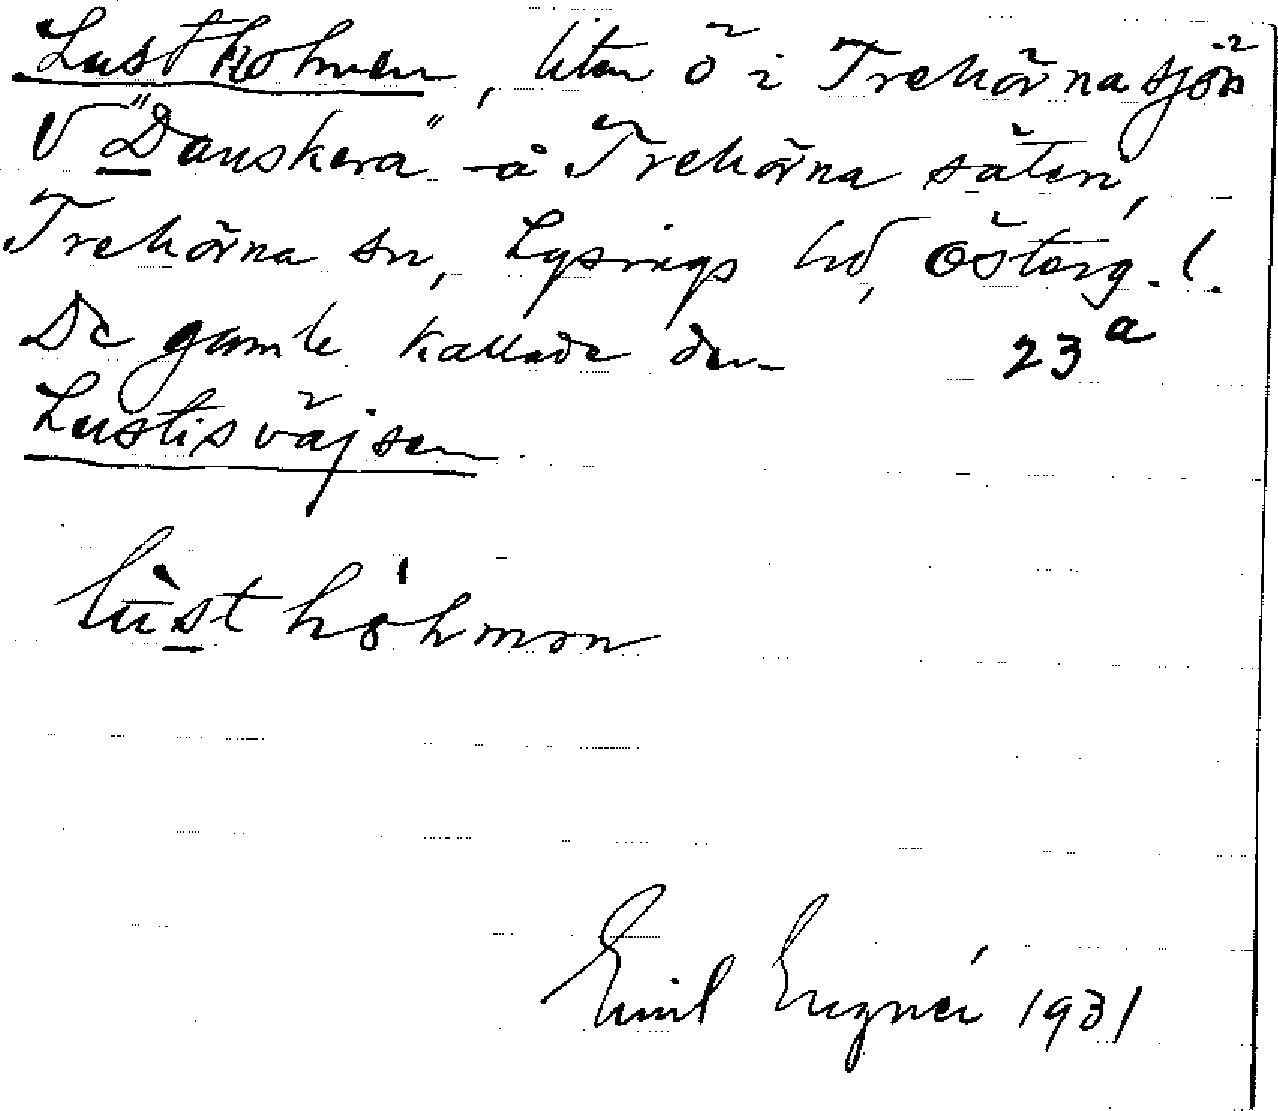 Lustholmen, liten ö i Trehörnasjön
V "Danskera" å Trehörna säteri,
Trehörna sn, Lysings hd, Österg. l.
De gamle kallade den 23a
Lustisväjsen
Emil 1931